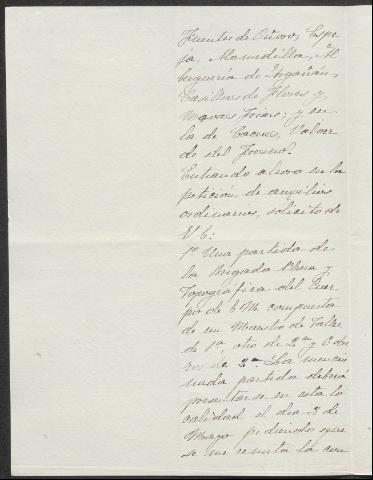 Fuentes de Oñoro, Espe
ja, Alamedilla, Al
berguería de Argañan,
Casillas de Flores y
Navas frias; y en
la de Caceres, Valver
de del Fresno.
Entrando ahora en la
petición de auxilios
ordinarios, solicito de
V.E:
1º Una partida de
la Brigada Obrera y
Topográfica del Cuer
po de E.M. compuesta
de un Maestro de Taller
de 1ª, otro de 2ª y Obre
ros de 2ª. La mencio
nada partida deberá
presentarse en esta lo
calidad el dia 3 de
Mayo pidiendo que
se me remita la con